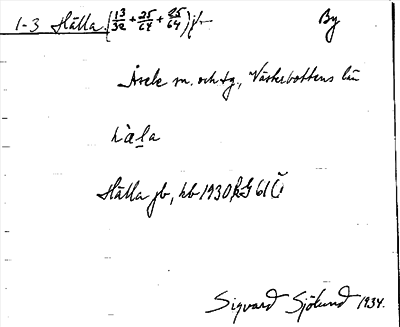 1-3 Hälla (13/32 + 25/64 + 25/64) jb By
Åsele sn. och tg, Västerbottens län
hàla
Hälla jb, kb 1930, G 61
Sigvard Sjölund 1934.